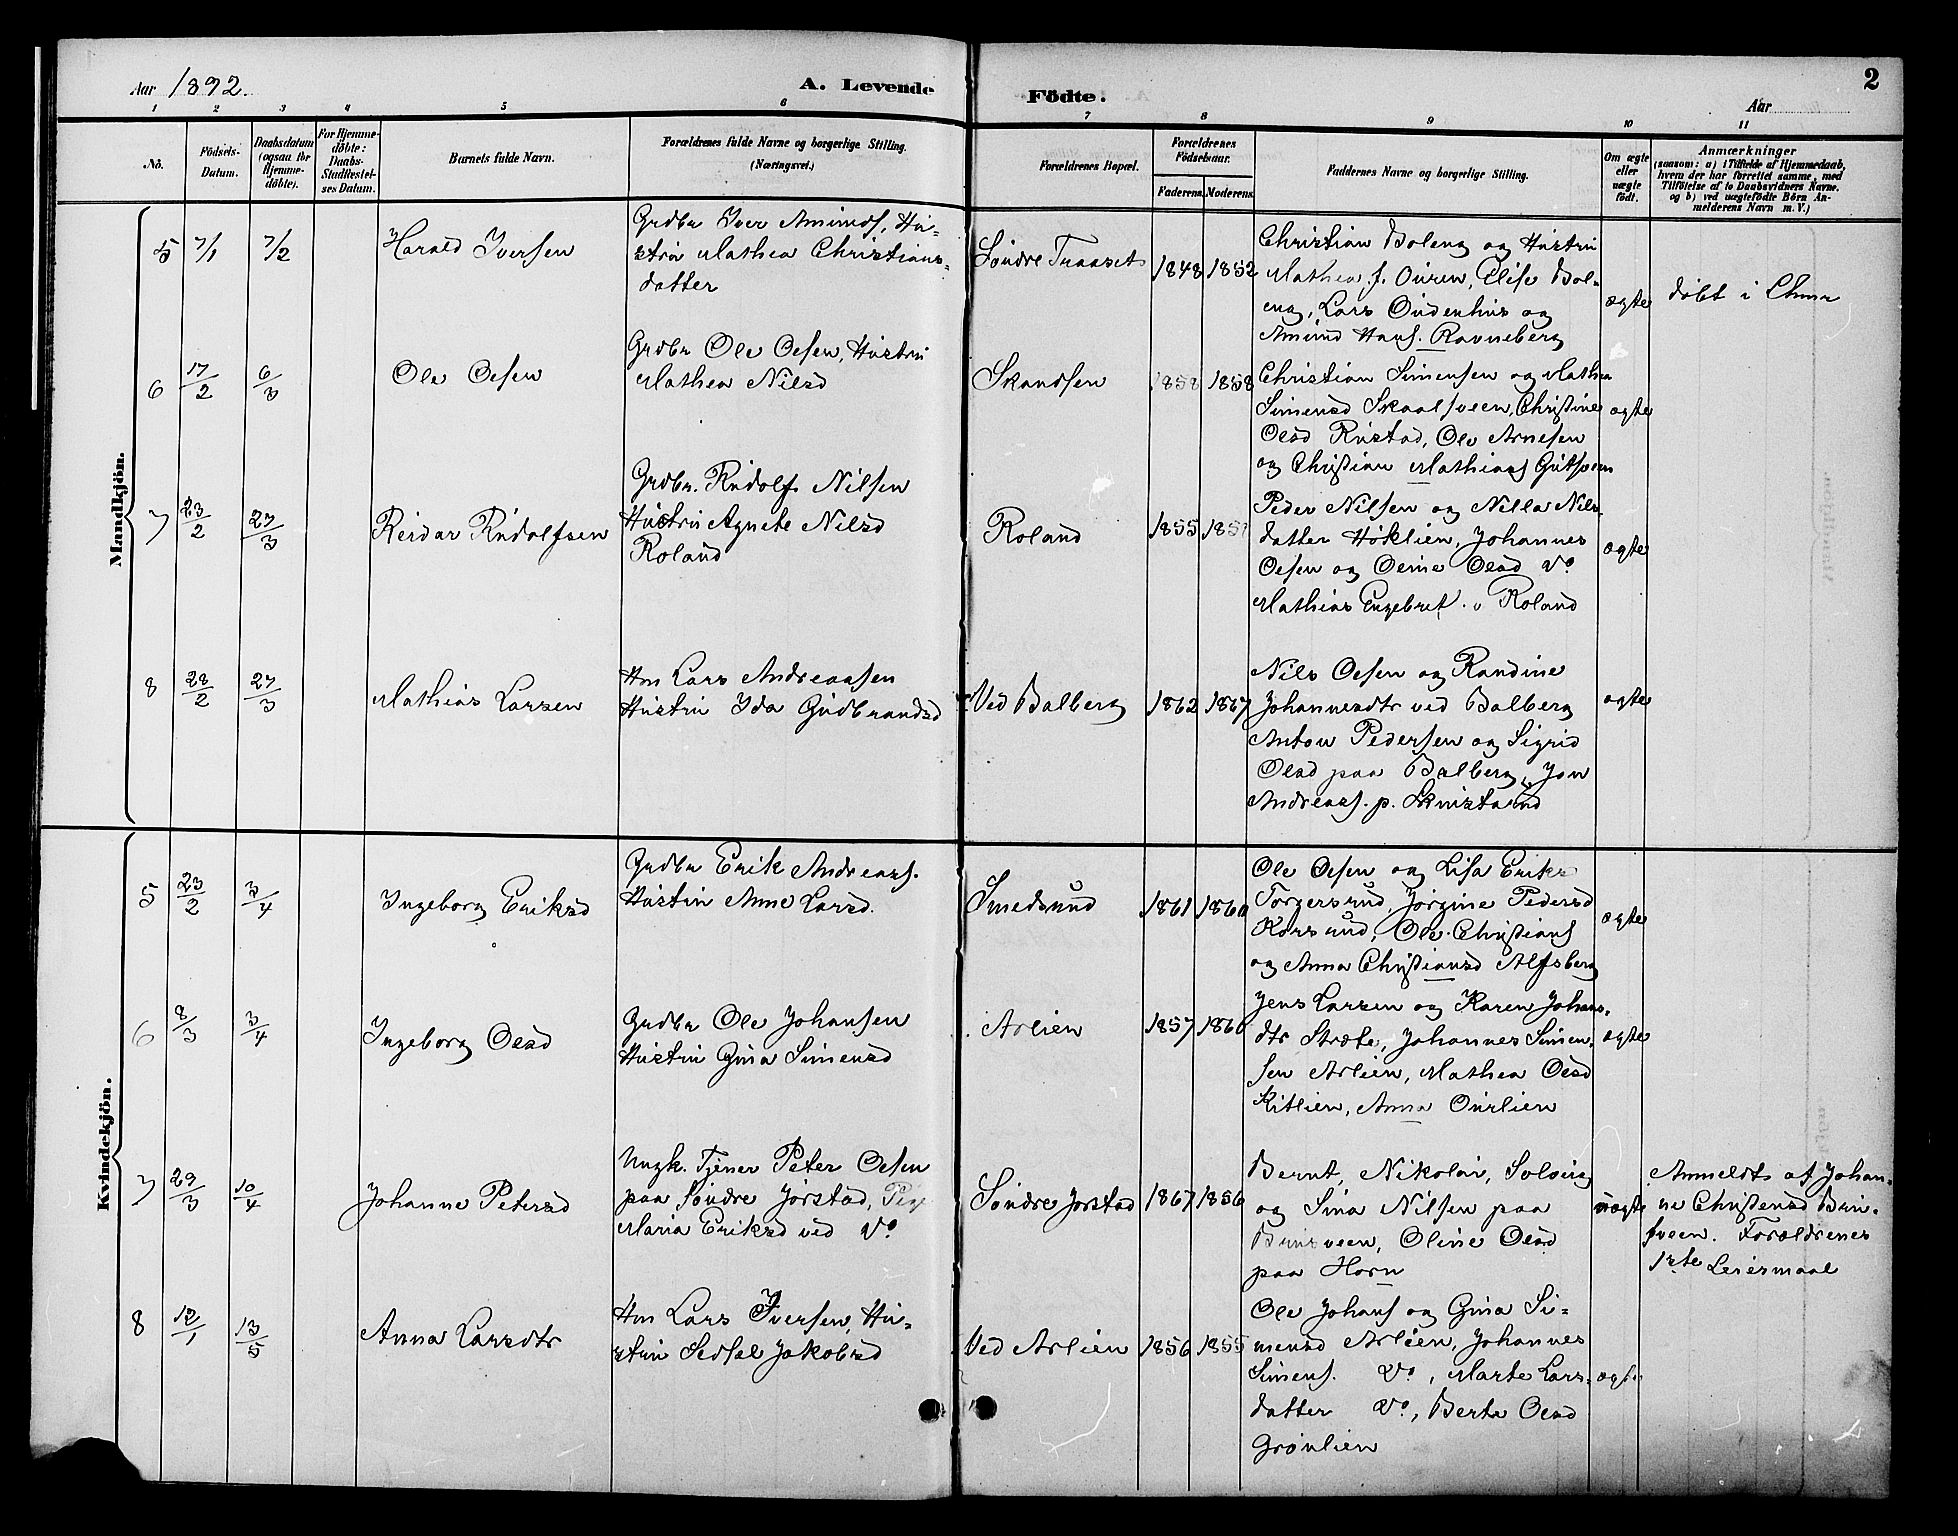 Aar 1892.
A. Levende Födte.
2
Aar
1 2 3 4 5 6 7 8 9 10 11
No.
Födsels-Datum.
Daabsdatum (ogsaa for Hjemme-döbte).
For Hjemme-döbte: Daabs-Stadfæstelses Datum.
Barnets fulde Navn.
Forældrenes fulde Navne og borgerlige Stilling. (Næringsvei.)
Forældrenes Bopæl.
Forældrenes Födselsaar.
Faderens. Moderens.
Faddernes Navne og borgerlige Stilling.
Om ægte eller uægte födt.
Anmærkninger
(saasom: a) i Tilfælde af Hjemmedaab, hvem der har forrettet samme, med Tilföielse af to Daabsvidners Navne, og b) ved uægtefödte Börn Anmelderens Navn m. V.)
Mandkjön.
5 7/1 7/2 Harald Iversen
Grdbr Iver Amunds, Hu-
stru Mathea Christians-
datter
Søndre Traaset 1848 1852
Christian Boleng og Hustru
Mathea f. Ouren, Elise Bol-
eng, Lars Oudenhus og
Amund Hans. Ravneberg
ægte
døbt i
6 17/2 6/3 Ole Olsen
Grdbr Ole Olsen, Hustru
Mathea Nilsd
Skandsen 1858 1858
Christian Simensen og Mathea
Simensd Skaalsveen, Christine
Olsd Rustad, Ole Arnesen
og Christian Mathias
ægte
7 23/2 27/3 Reidar Rudolfsen
Grdbr. Rudolf Nilsen
Hustru Agnete Nilsd
Roland
Roland 1855
Peder Nilsen og Nilla Nils-
datter Høklien, Johannes
Olsen og Oline Olsd do
Mathias Engebret. v Roland
ægte
8 28/2 27/3 Mathias Larsen
Hm Lars Andreassen
Hustru Ida Gudbrandsd
Ved Balberg 1862 1867
Nils Olsen og Randine
Johannesdtr ved Balberg
Anton Pedersen og Sigrid
Olsd paa Balberg, Jon
Andreass. p.
ægte
Kvindekjön.
5 23/2 3/4 Ingeborg Eriksd
Grdbr Erik Andreass.
Hustru Anne Larsd.
Smedsund 1861 1860
Ole Olsen og Lisa Eriks
Torgersrud, Jørgine Pedersd
Korsrud, Ole Christians
og Anna Christiansd Alfsberg
ægte
6 8/3 3/4 Ingeborg Olsd
Grdbr Ole Johansen
Hustru Gina Simensd
Arlien 1857 1860
Jens Larsen og Karen Johans-
dtr Stræte, Johannes Simen-
sen Arlien, Mathea Olsd
Kitlien, Anna Ourlien
ægte
7 29/3 10/4 Johanne Petersd
Ungk. Tjener Peter Olsen
paa Søndre Jørstad, Pig
Maria Eriksd ved do
Søndre Jørstad 1867 1856
Bernt, Nikolai, Solveig
og Sina Nilsen paa
Brunsveen, Oline Olsd
paa Horn
uægte
Anmeldts af Johan-
ne Christensd Brun-
sveen. Forældrenes
1ste Leiermaal
8 12/1 13/5 Anna Larsdtr
Hm Lars Iversen, Hu-
stru Sedsel Jakobsd
Ved Arlien 1856 1855
Ole Johans og Gina Si-
mensd Arlien, Johannes
Simens. do, Marte Lars-
datter do, Berte Olsd
Grønlien
ægte